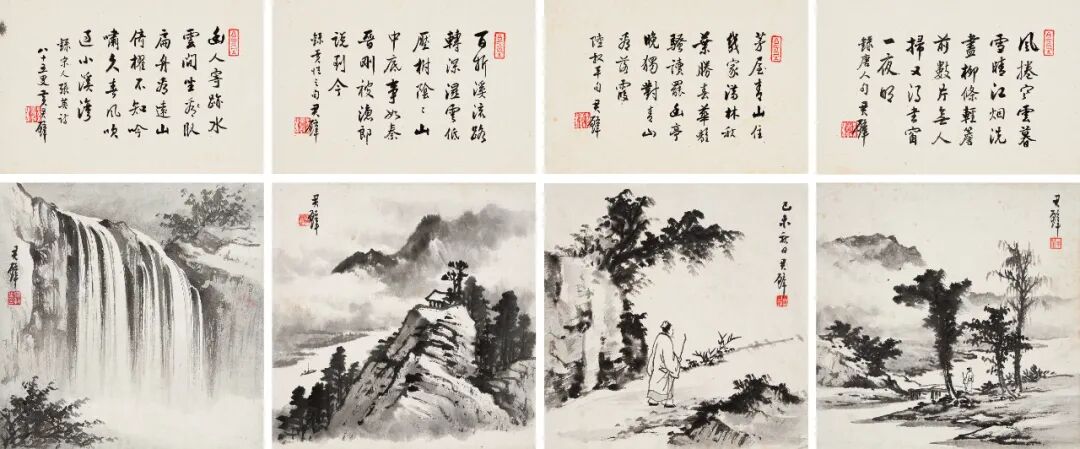 風捲寒雲暮
雪晴江烟洗
盡柳條輕簷
前數片無人
掃又得書窗
一夜明
錄唐人句 君璧
茅屋青山住
幾家林秋
葉勝春華離
騷讀罷幽亭
晚獨對青山
看落霞
陸叔平句 君璧
百折溪流路
轉深濕雲低
壓樹陰陰山
中底事如秦
晉剛被漁郎
說到今
錄黃之句 君璧
幽人寄跡水
雲間臥
扁舟遠山
倚櫂不知吟
嘯久春風吹
過小溪灣
錄宋人張英詩
八十五叟黃君璧
君璧
己未秋日君璧
君璧
君璧